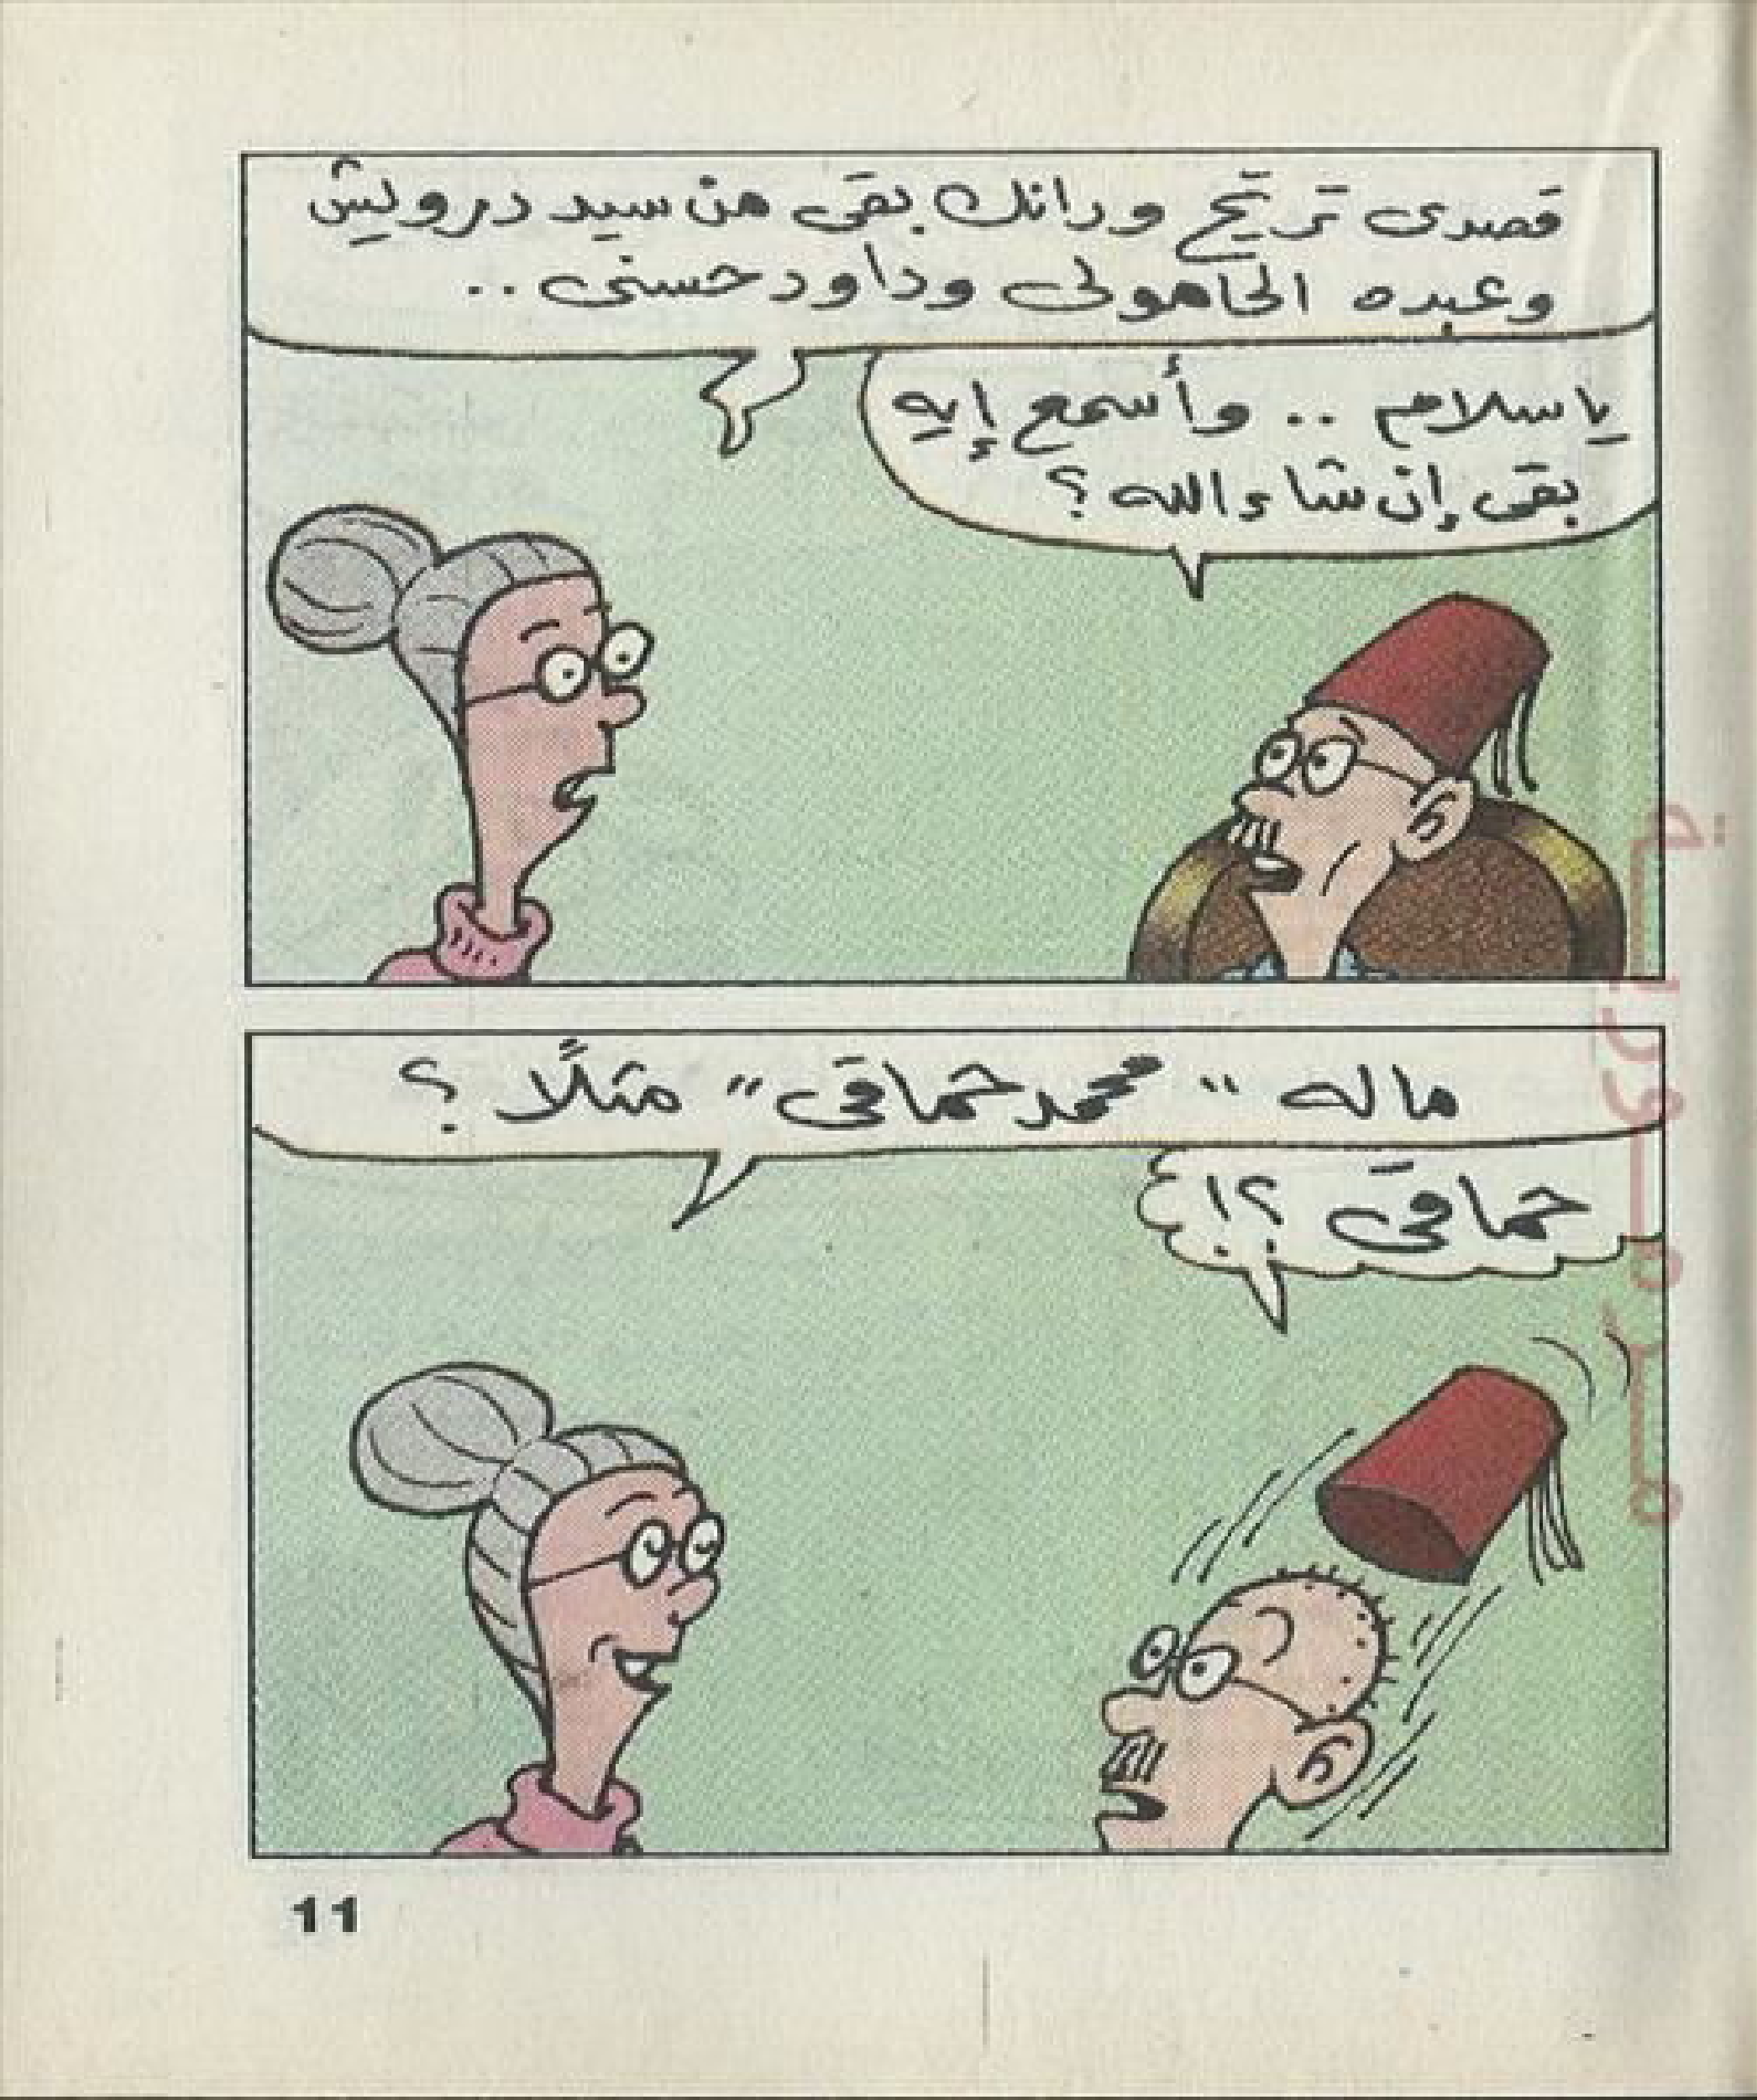 قصدى تريّح ودانك بقى من سيد درويش
وعبده الحامولى وداود حسنى ..
ياسلام .. وأسمع إيه
بقى إن شاء الله ؟
ماله "محمد حماقى" مثلًا ؟
حماقى ؟!
11